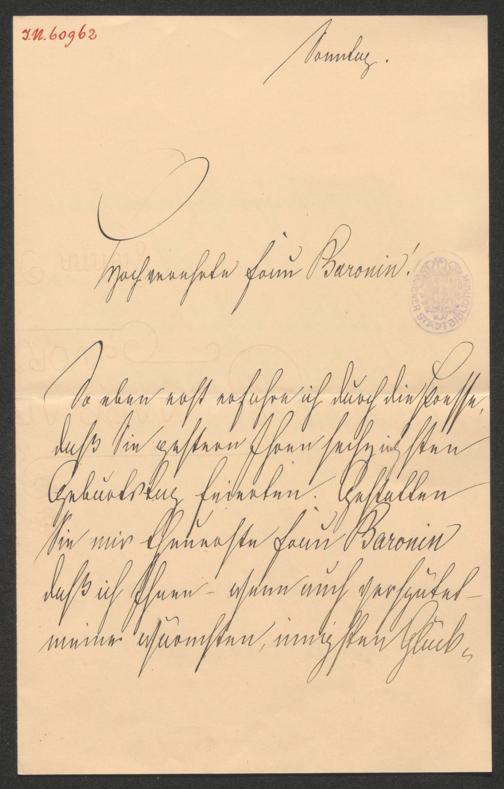 I.N. 60962
Sonntag.
Hochverehrte Frau Baronin!
So eben erst erfahre ich durch die Presse,
daß Sie gestern Ihren sechzigsten
Geburtstag feierten. Gestatten
Sie mir theuerste Frau Baronin
daß ich Ihnen – wenn auch verspätet –
meine wärmsten, innigsten Glück-